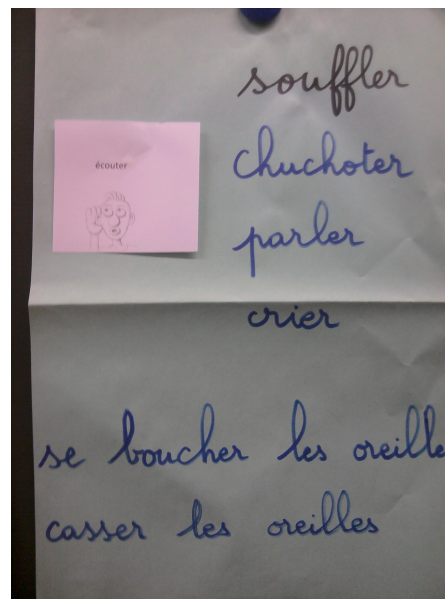 souffler
écouter
chuchoter
parler
crier
se boucher les oreille
casser les oreilles